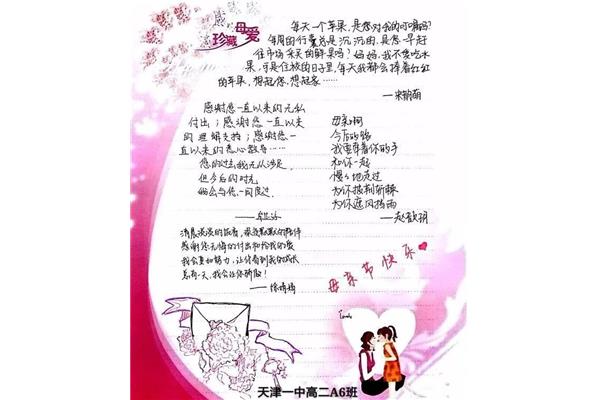 珍藏母爱
每天一个苹果,是您对我的叮嘱吗?
每周的行囊总是沉沉的,是您一早赶
往市场采买的鲜果吗?妈妈,我不爱吃水
果,可是住校的日子里,每天我都会捧着红红
的苹果,想起您,想起家……
感谢您一直以来的无私
付出;感谢您一直以来
的理解支持;感谢您一
直以来的悉心教导……
您的过去,我无从涉足,
但今后的时光
她会与您一同度过.
母亲啊
今后的路
我要牵着你的手
和你一起
慢慢地走过
为你披荆斩棘
为你遮风挡雨
——赵歆玥
清晨淡淡的饭香,夜晚默默的陪伴
感谢您无悔的付出和给我的爱
我会更加努力,让你看到我的成长
总有一天,我会让你骄傲!
母亲节快乐
天津一中高二A6班